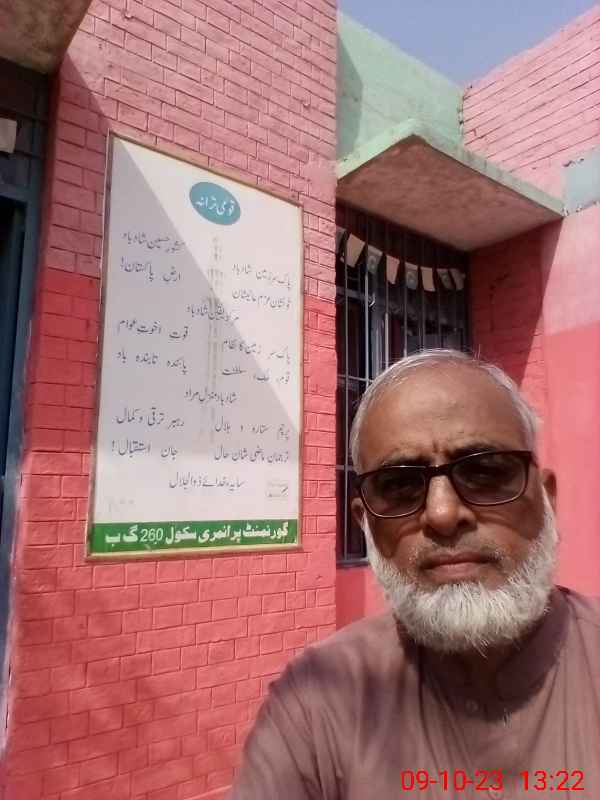 قومی ترانہ
پاک سرزمین شاد باد کشور حسین شاد باد
تو نشان عزم عالیشان ارض پاکستان!
مرکز یقین شاد باد
پاک سر زمین کا نظام قوت اخوت عوام
قوم، ملک، سلطنت پائندہ تابندہ باد
شاد باد منزل مراد
پرچم ستارہ و ہلال رہبر ترقی و کمال
ترجمان ماضی شان حال جان استقبال!
سایہ خدائے ذوالجلال
گورنمنٹ پرائمری سکول 260 گ ب
09-10-23 13:22